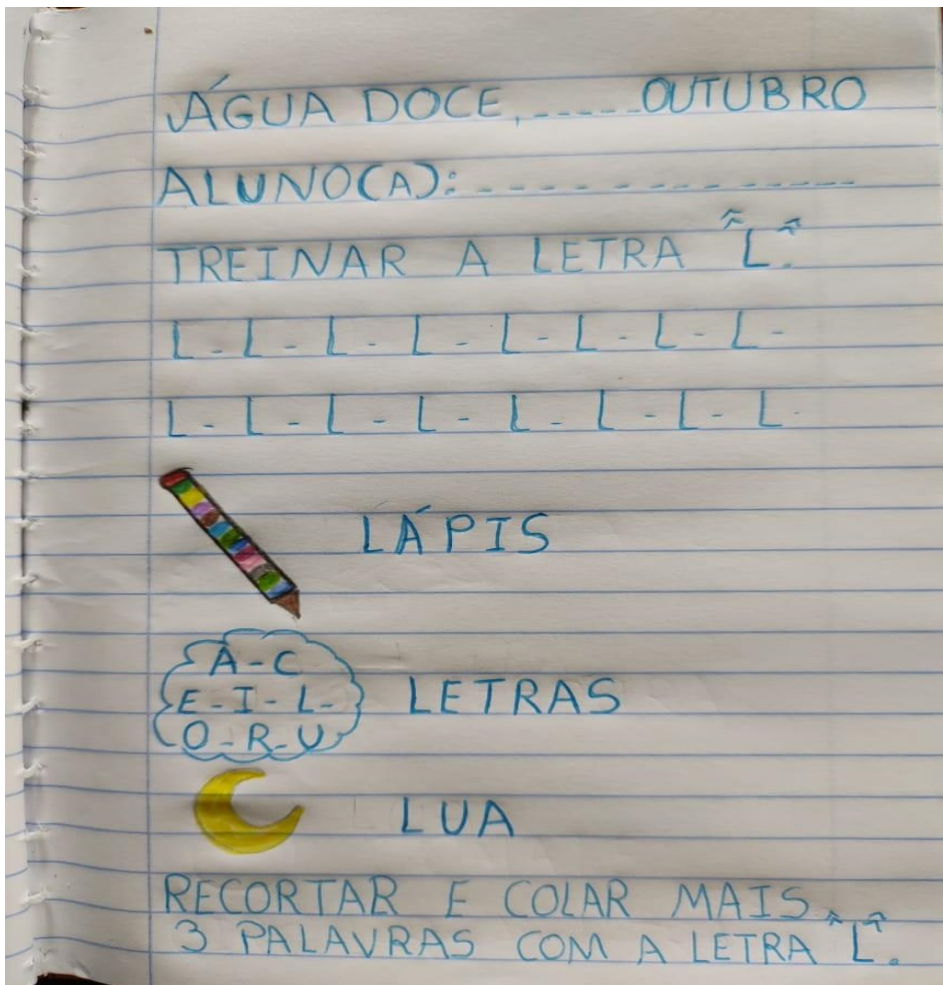 ÁGUA DOCE, _ _ _ _ _ OUTUBRO
ALUNO(A): _ _ _ _ _ _ _ _ _ _ _ _ _ _
TREINAR A LETRA "L".
L - L - L - L - L - L - L - L -
L - L - L - L - L - L - L - L -
LÁPIS
A - C
E - I - L -
O - R - U
LETRAS
LUA
RECORTAR E COLAR MAIS
3 PALAVRAS COM A LETRA "L".